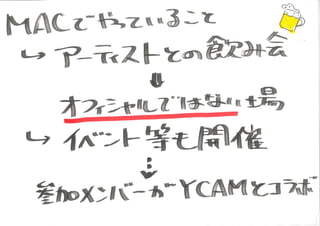 MACでやっていること
↳ アーティストとの飲み会
⬇
オフィシャルではない場
↳ イベント等も開催
⋮
参加メンバーがYCAMとコラボ